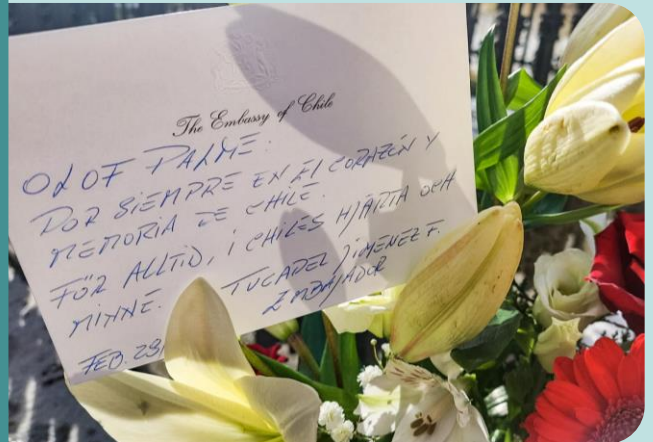 The Embassy of Chile
OLOF PALME:
POR SIEMPRE EN EL CORAZÓN Y
MEMORIA DE CHILE.
FÖR ALLTID, I CHILES HJÄRTA OCH
MINNE. TUCAPEL JIMENEZ F.
EMBAJADOR
FEB. 29